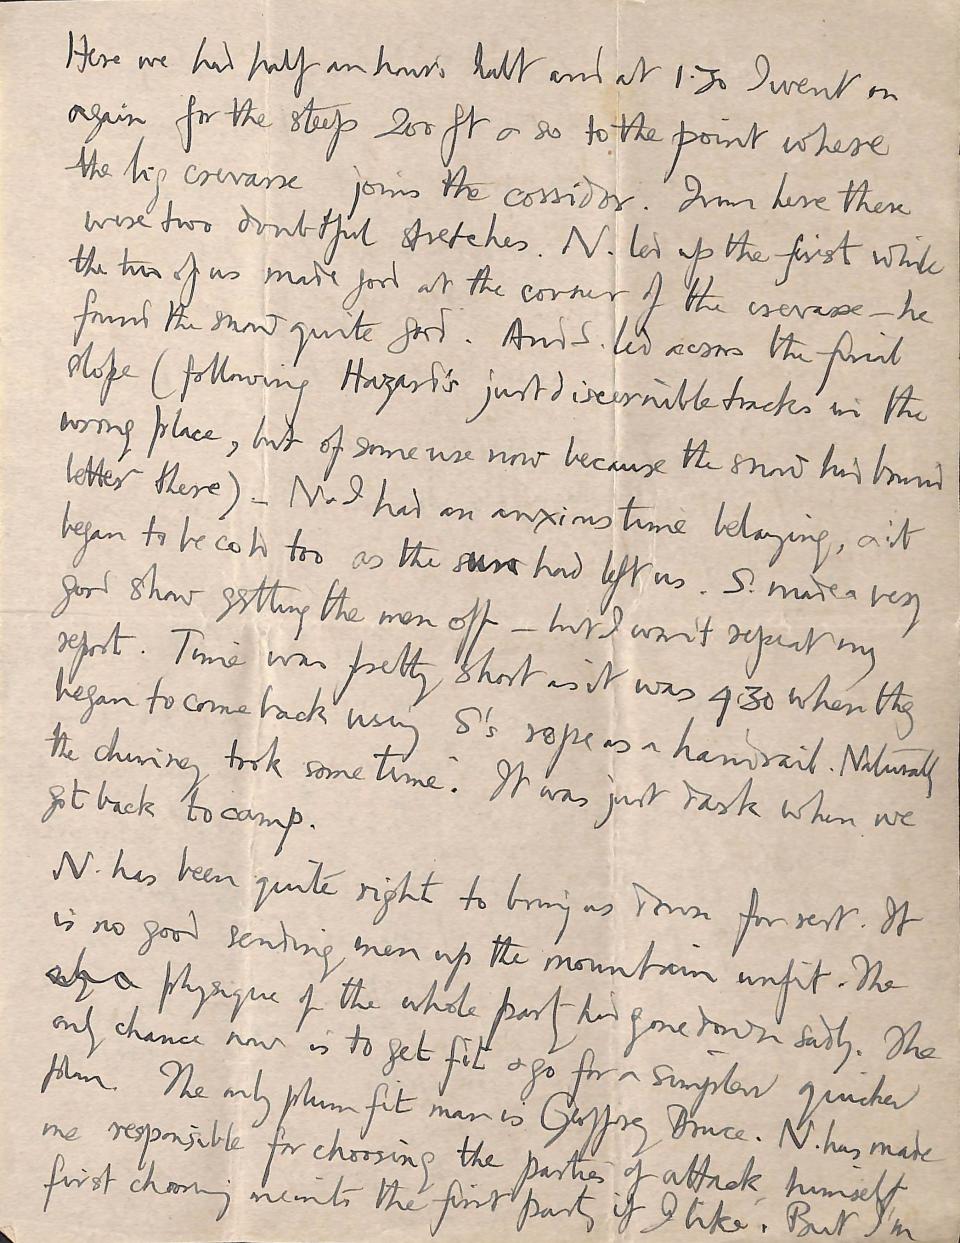 Here we had half an hour's halt and at 1.30 I went on
again for the steep 200 ft or so to the point where
the big crevasse joins the corridor. From here there
were two doubtful stretches. N. led up the first while
the two of us made good at the corner of the crevasse – he
found the snow quite good. And S. led across the final
slope (following Hazard's just discernible tracks in the
wrong place, but of some use now because the snow had bound
better there) – N. & I had an anxious time belaying, & it
began to be cold too as the sun had left us. S. made a very
good show getting the men off – but I won't repeat my
report. Time was pretty short as it was 4.30 when they
began to come back using S's rope as a handrail. Naturally
the chimney took some time. It was just dark when we
got back to camp.
N. has been quite right to bring us down for rest. It
is no good sending men up the mountain unfit. The
physique of the whole party has gone down sadly. The
only chance now is to get fit & go for a simpler quicker
plan. The only plum fit man is Geoffrey Bruce. N. has made
me responsible for choosing the parties of attack, himself
first choosing me into the first party if I like. But I'm